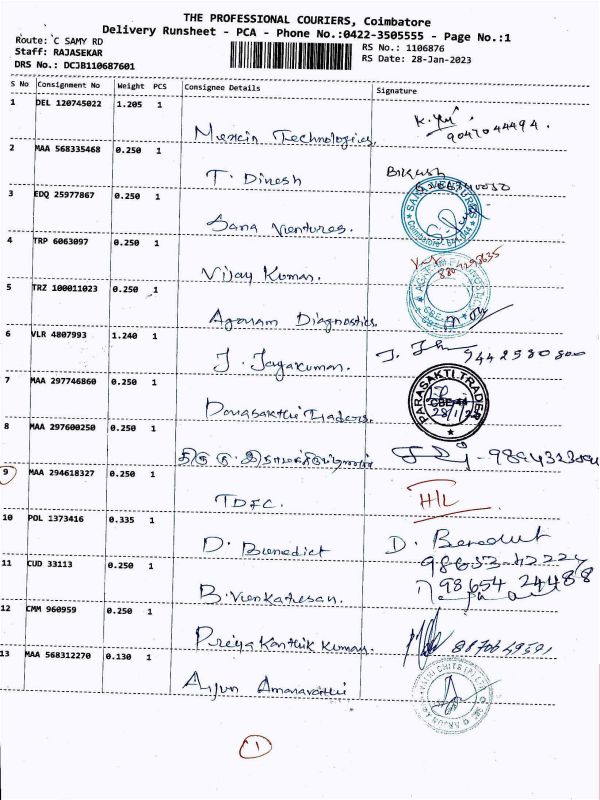 THE PROFESSIONAL COURIERS, Coimbatore
Delivery Runsheet - PCA - Phone No.:0422-3505555 - Page No.:1
Route: C SAMY RD
RS No.: 1106876
Staff: RAJASEKAR
RS Date: 28-Jan-2023
DRS No.: DCJB110687601
S No Consignment No Weight PCS Consignee Details Signature
1 DEL 120745022 1.205 1
Technologies 9047044494.
2 MAA 568335468 0.250 1
T. Dinesh
3 EDQ 25977867 0.250 1
Sana Ventures.
4 TRP 6063097 0.250 1
Vijay Kumar.
5 TRZ 100011023 0.250 1
Agaram Diagnostics.
6 VLR 4807993 1.240 1
J. Jayakumar.
7 MAA 297746860 0.250 1
PARASAKTI TRADER
CBE-44
8 MAA 297600250 0.250 1
9 MAA 294618327 0.250 1
TDFC.
10 POL 1373416 0.335 1
D. Benedict
11 CUD 33113 0.250 1
98654 24488
B. Venkatesan.
12 CMM 960959 0.250 1
Priya Karthik Kumar.
13 MAA 568312270 0.130 1
Arjun Amaravathi
1